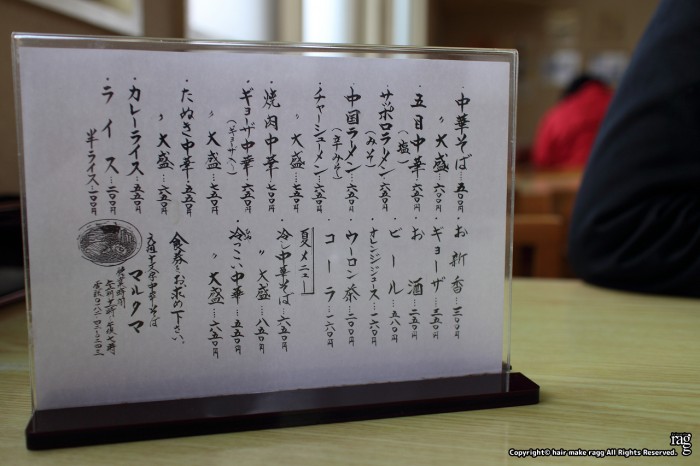 ・中華そば…五〇〇円
〃 大盛…六〇〇円
・五目中華…六五〇円
(塩)
・サッポロラーメン…六五〇円
(みそ)
・中国ラーメン…六五〇円
(辛みそ)
・チャーシューメン…六五〇円
〃 大盛…七五〇円
・焼肉中華…七〇〇円
・ギョーザ中華…六五〇円
(ギョーザ入り)
〃 大盛…七五〇円
・たぬき中華…五五〇円
〃 大盛…六五〇円
・カレーライス…五五〇円
・ライス…二〇〇円
半ライス…一〇〇円
・お新香…三〇〇円
・ギョーザ…三五〇円
・お酒…二五〇円
・ビール…五八〇円
・オレンジジュース…一六〇円
・ウーロン茶…二〇〇円
・コーラ…一六〇円
夏メニュー
・冷し中華そば…六五〇円
〃 大盛…八五〇円
・冷っこい中華…五五〇円
〃 大盛…六五〇円
食券をお求め下さい。
中華そば
マルタマ
営業時間
rag
Copyright© hair make ragg All Rights Reserved.